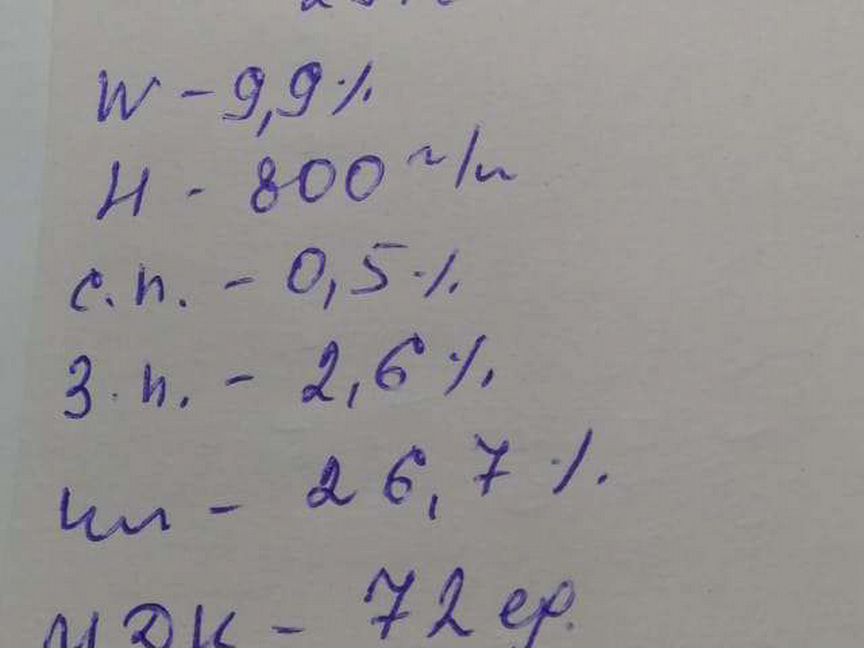 W - 9,9 %
Н - 800 г/л
с.п. - 0,5 %
З.п. - 2,6 %
кл - 26,7 %.
ИДК - 72 ер.